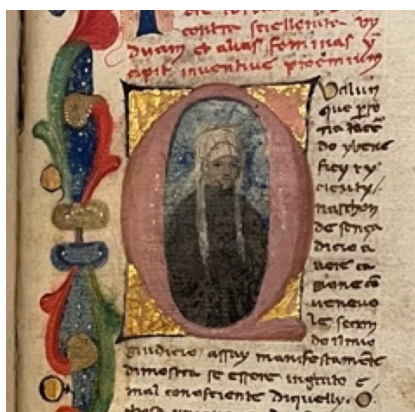 contra scellerate vy
duam et alias feminas y
cipit inventive proemium
Q valun
que
tacē
do ybene
ficy ry
ceuty
naschon
de sença
dicio a
uere ca
gione cō
veneuo
le secon
do il mio
giudicio assay manifestamēte
dimostra se essere ingrato e
mal conoscente diquelly. O